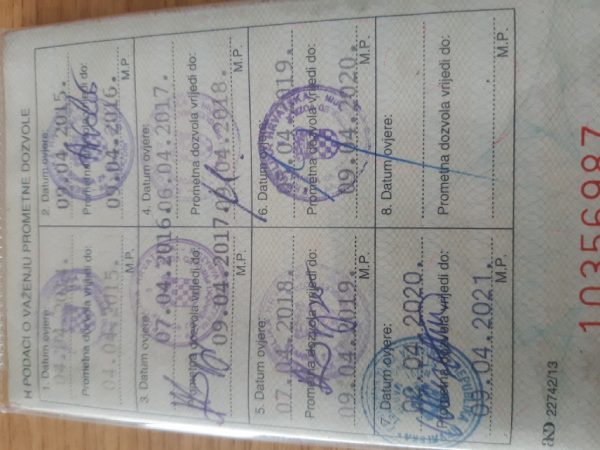 H PODACI O VAŽENJU PROMETNE DOZVOLE
1. Datum ovjere:
Prometna dozvola vrijedi do:
M.P.
2. Datum ovjere:
09.04.2015.
Prometna dozvola vrijedi do:
09.04.2016.
M.P.
3. Datum ovjere:
07.04.2016.
Prometna dozvola vrijedi do:
09.04.2017.
M.P.
4. Datum ovjere:
06.04.2017.
Prometna dozvola vrijedi do:
09.04.2018.
M.P.
5. Datum ovjere:
07.04.2018.
Prometna dozvola vrijedi do:
09.04.2019.
M.P.
6. Datum ovjere:
04.2019.
Prometna dozvola vrijedi do:
09.04.2020.
M.P.
7. Datum ovjere:
04.2020.
Prometna dozvola vrijedi do:
09.04.2021.
M.P.
8. Datum ovjere:
Prometna dozvola vrijedi do:
M.P.
22742/13
10356987